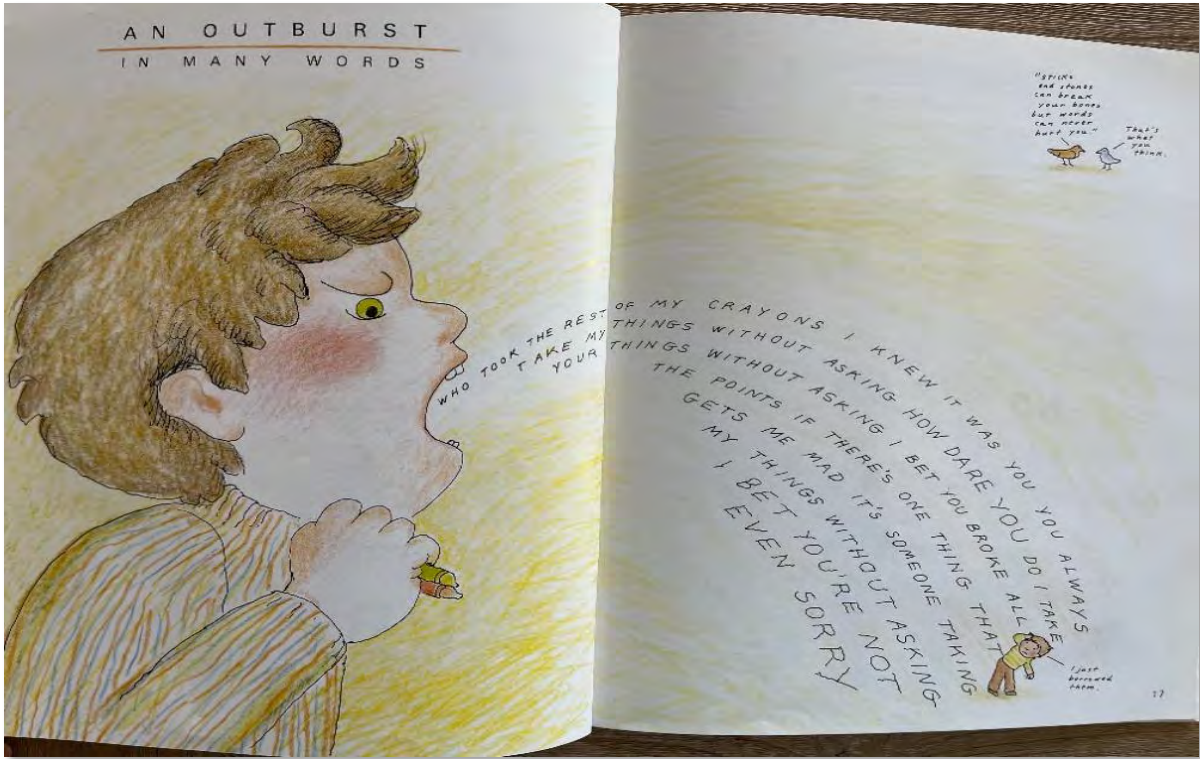 AN OUTBURST
IN MANY WORDS
"Sticks
and stones
can break
your bones
but words
can never
hurt you."
That's
what
you
think.
WHO TOOK THE REST OF MY CRAYONS I KNEW IT WAS YOU YOU ALWAYS
TAKE MY THINGS WITHOUT ASKING HOW DARE YOU DO I TAKE
YOUR THINGS WITHOUT ASKING I BET YOU BROKE ALL
THE POINTS IF THERE'S ONE THING THAT
GETS ME MAD IT'S SOMEONE TAKING
MY THINGS WITHOUT ASKING
I BET YOU'RE NOT
EVEN SORRY
I just
borrowed
them.
17